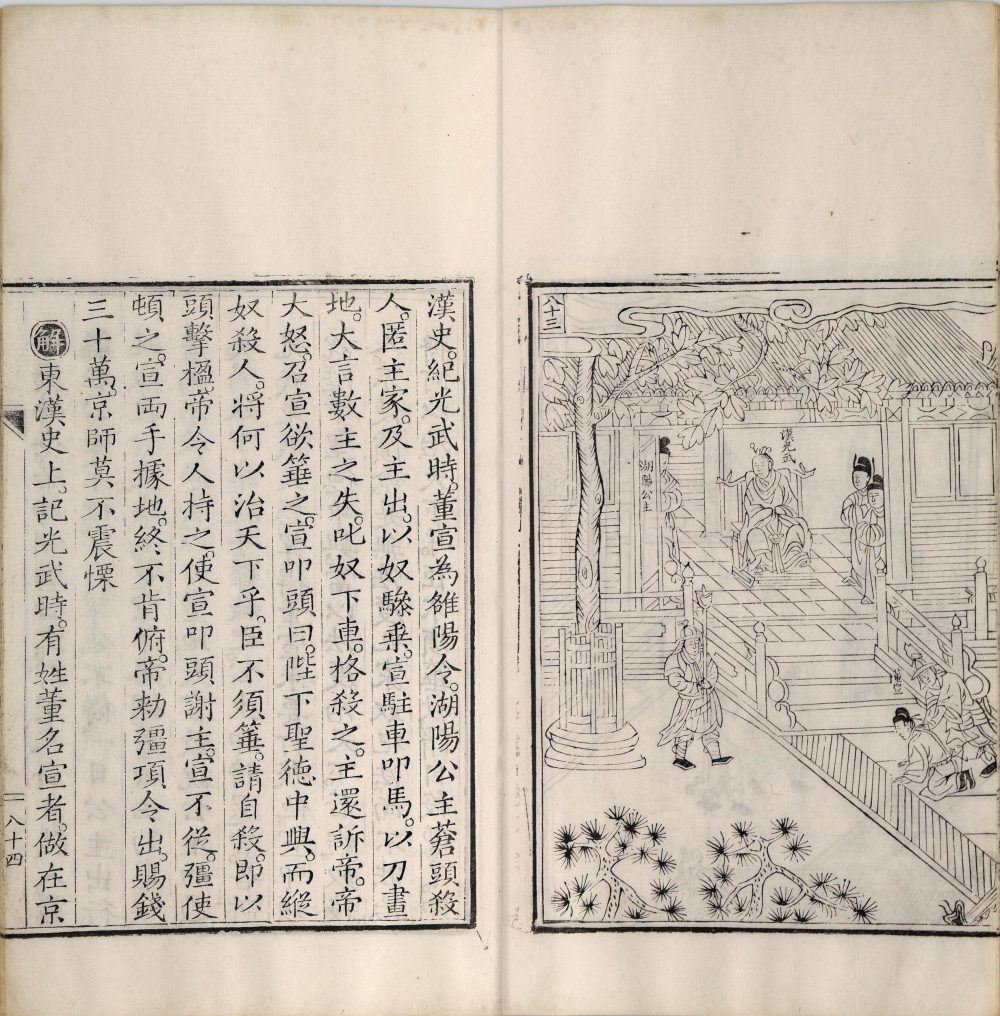 八十三
漢光武
湖陽公主
董宣
漢史。紀光武時。董宣為雒陽令。湖陽公主蒼頭殺
人。匿主家。及主出。以奴驂乘。宣駐車叩馬。以刀畫
地。大言數主之失。叱奴下車。格殺之。主還訴帝。帝
大怒。召宣欲箠之。宣叩頭曰。陛下聖徳中興。而縱
奴殺人。將何以治天下乎。臣不須箠。請自殺。即以
頭擊楹。帝令人持之。使宣叩頭謝主。宣不從。彊使
頓之。宣両手據地。終不肯俯。帝勑彊項令出。賜錢
三十萬。京師莫不震慄
解 東漢史上。記光武時。有姓董名宣者。做在京
八十四